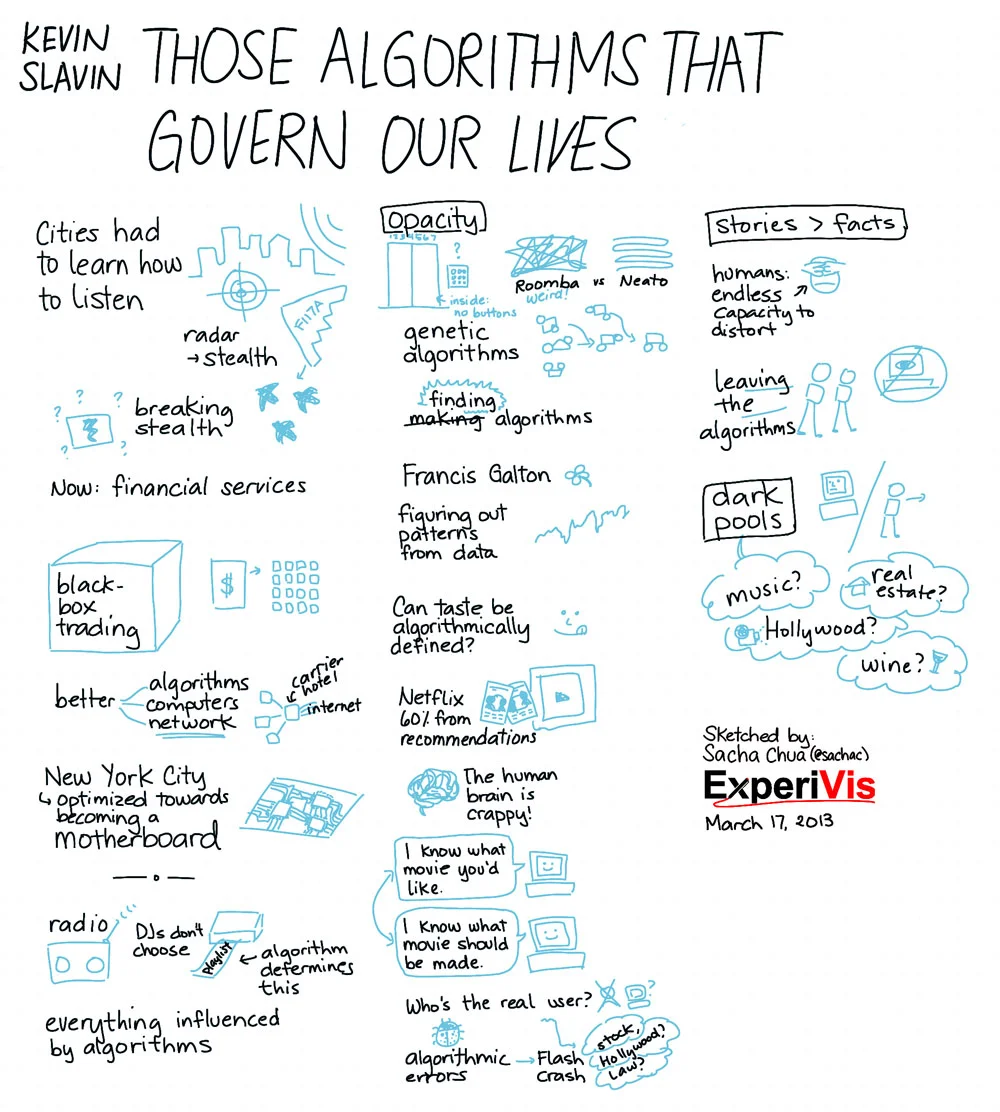 KEVIN
SLAVIN
THOSE ALGORITHMS THAT
GOVERN OUR LIVES
Cities had
to learn how
to listen
radar
→ stealth
F117A
? ? ? ?
breaking
stealth
Now: financial services
black-
box
trading
$
better
algorithms
computers
network
carrier
hotel
internet
New York City
↳ optimized towards
becoming a
motherboard
radio
DJs don't
choose
playlist
← algorithm
determines
this
everything influenced
by algorithms
opacity
1 2 3 4 5 6 7
?
inside:
no buttons
Roomba vs Neato
weird!
genetic
algorithms
finding
making algorithms
Francis Galton
figuring out
patterns
from data
Can taste be
algorithmically
defined?
Netflix
60% from
recommendations
The human
brain is
crappy!
I know what
movie you'd
like.
I know what
movie should
be made.
Who's the real user?
?
algorithmic
errors
→ Flash
Crash
stock,
Hollywood?
Law?
Stories > facts
humans:
endless
capacity to
distort
leaving
the
algorithms
dark
pools
music?
real
estate?
Hollywood?
wine?
Sketched by:
Sacha Chua (@sachac)
ExperiVis
March 17, 2013